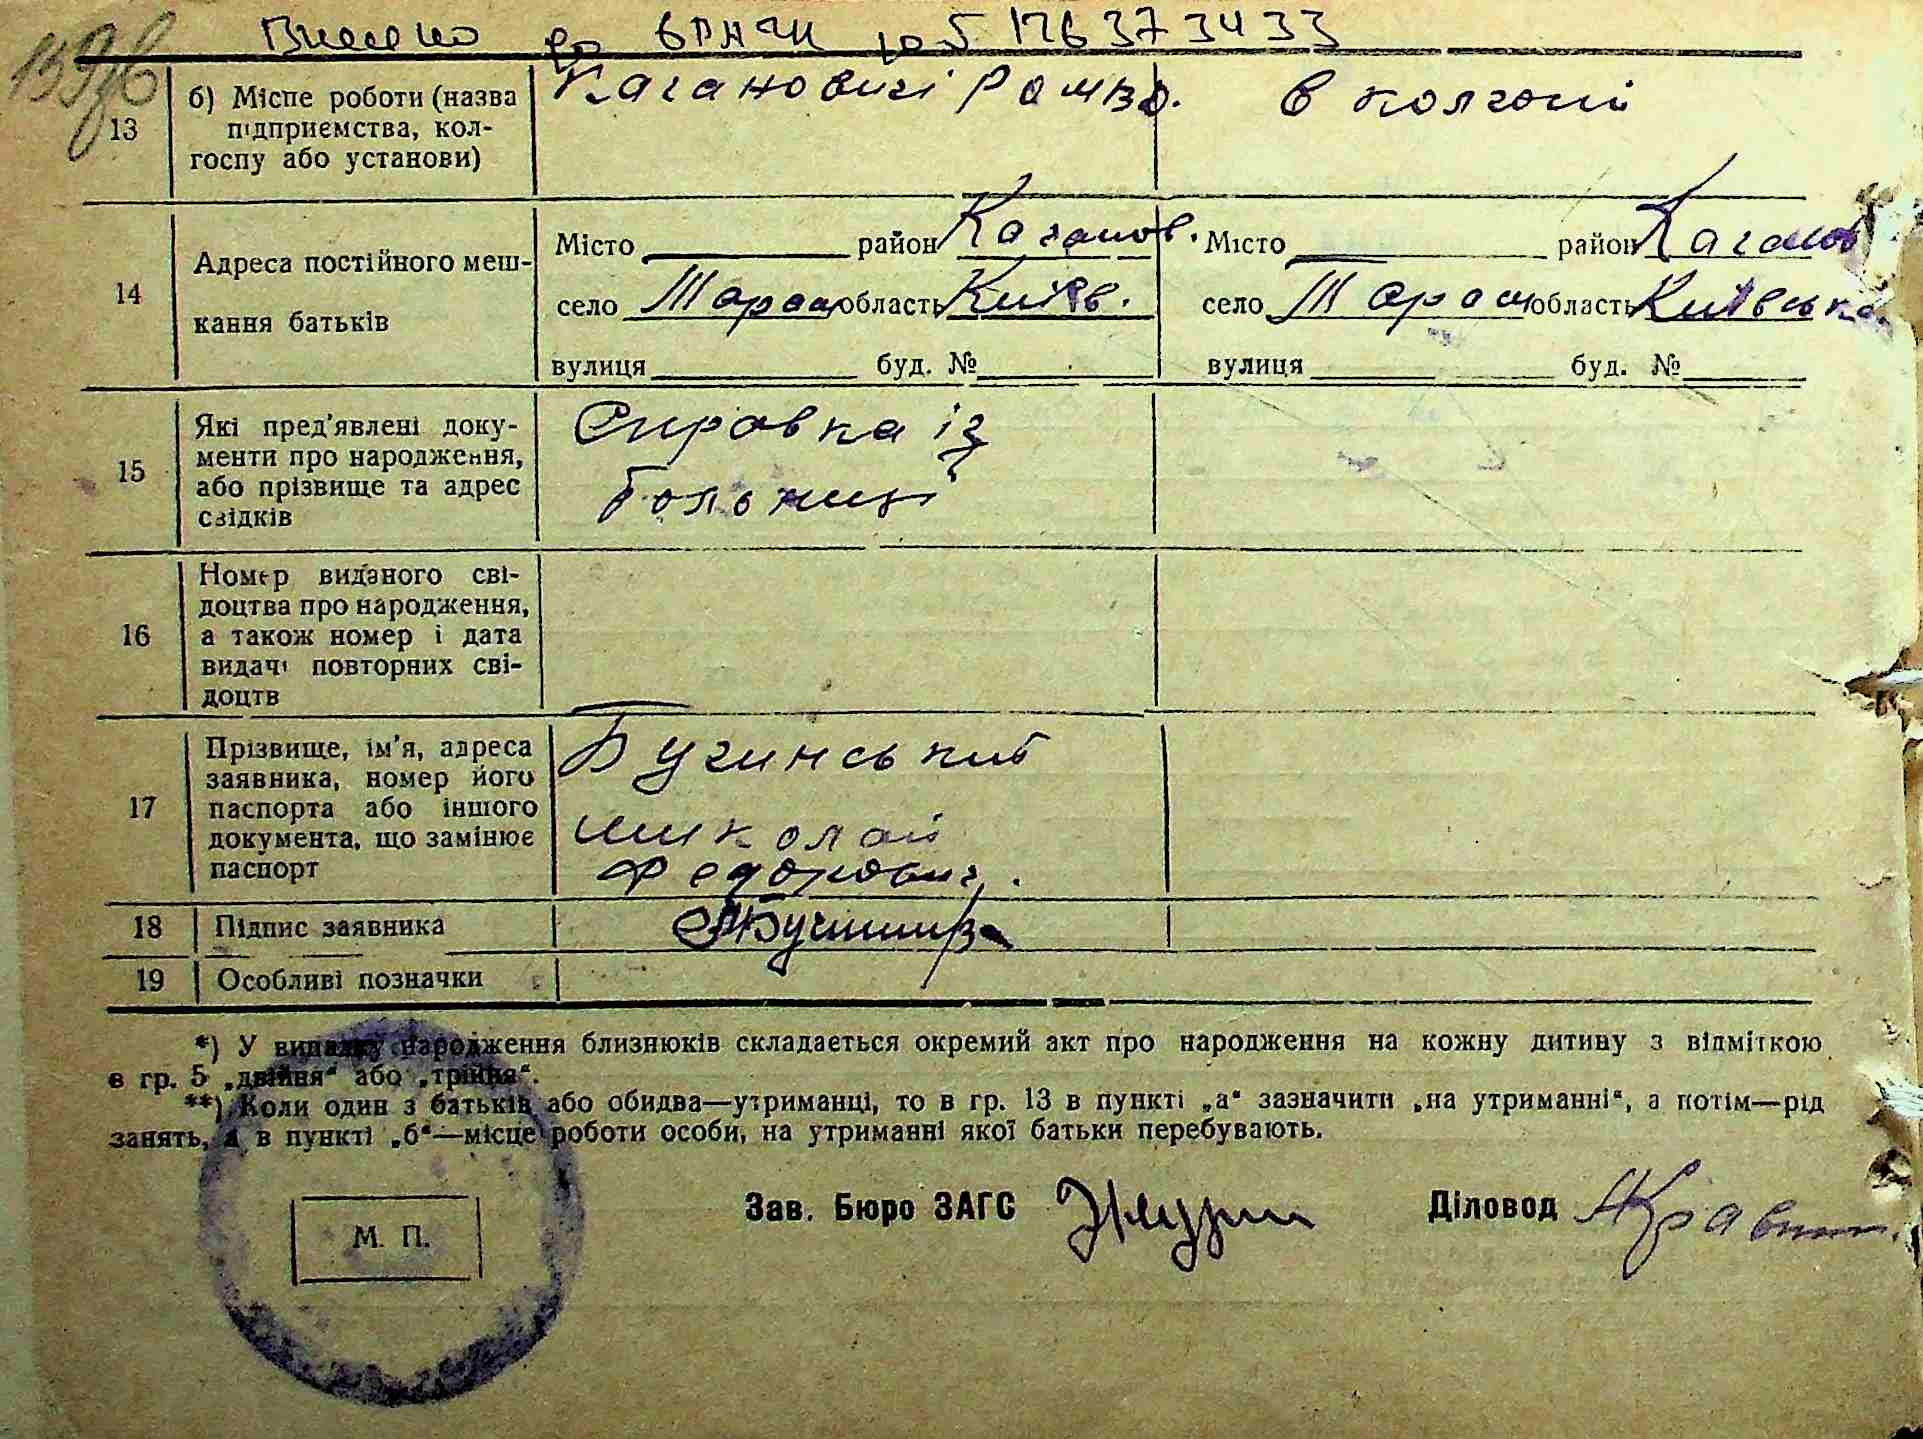 Внесено до
13
б) Місце роботи (назва підприємства, колгоспу або установи)
Кагановичі
в колгоспі
14
Адреса постійного мешкання батьків
Місто район Каганов.
село Тараси область Київ.
вулиця буд. №
Місто район Каганов
село Тараси область Київська
вулиця буд. №
15
Які пред'явлені документи про народження, або прізвище та адрес свідків
Справка із
больниці
16
Номер виданого свідоцтва про народження, а також номер і дата видачі повторних свідоцтв
17
Прізвище, ім'я, адреса заявника, номер його паспорта або іншого документа, що замінює паспорт
Бучинський
Миколай
Федорович.
18
Підпис заявника
19
Особливі позначки
*) У випадку народження близнюків складається окремий акт про народження на кожну дитину з відміткою
в гр. 5 „двійня“ або „трійня“.
**) Коли один з батьків або обидва—утриманці, то в гр. 13 в пункті „а“ зазначити „на утриманні“, а потім—рід
занять, а в пункті „б“—місце роботи особи, на утриманні якої батьки перебувають.
Зав. Бюро ЗАГС
Діловод
М. П.